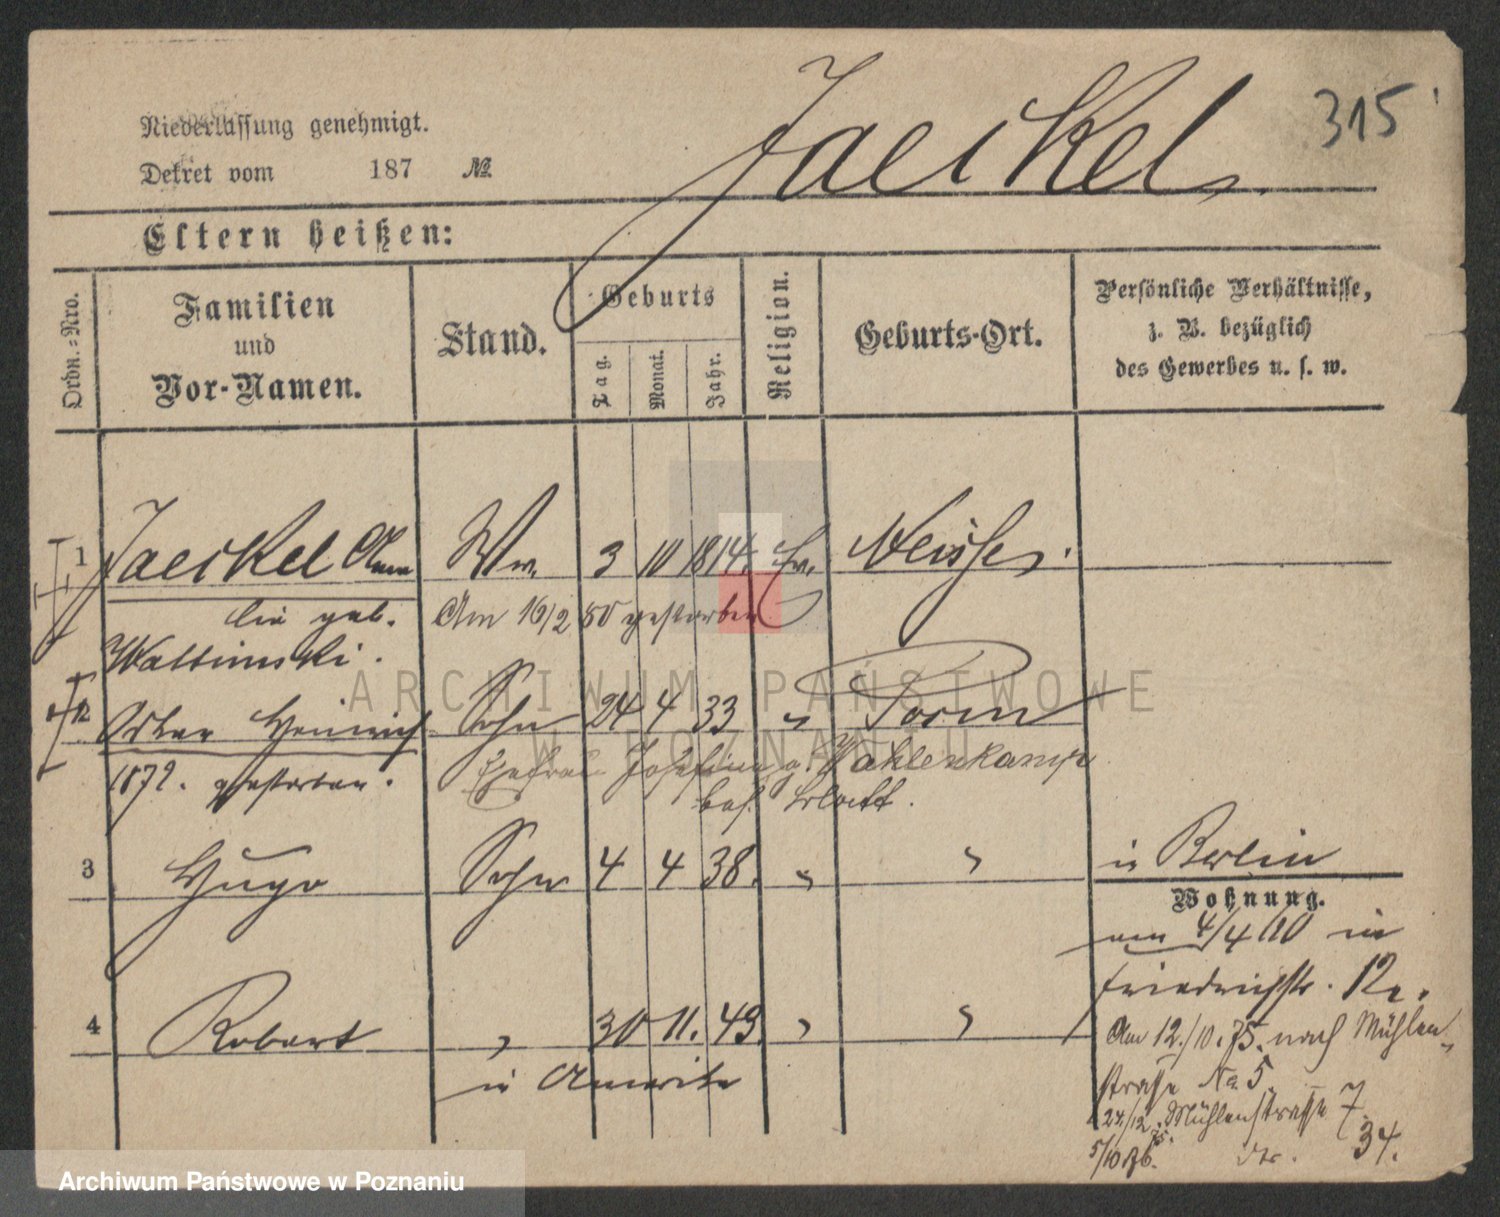 315
Niederlassung genehmigt.
Jaeckel.
Dekret vom 187 №
Eltern heißen:
Ordn.=Nro.
Familien und Vor-Namen.
Stand.
Geburts
Tag.
Monat.
Jahr.
Religion.
Geburts-Ort.
Persönliche Verhältnisse,
z. B. bezüglich
des Gewerbes u. s. w.
1 Jaeckel Ww. 3 10 1814. Ev. Neisse.
geb. Am 16/2 80 gestorben
2 Oskar Heinrich Sohn 24 4 33 " Posen
1872. gestorben. Ehefrau Josefine g. Wahlenkampf
3 Hugo Sohn 4 4 38. " " in Berlin
Wohnung.
4/4 in
Friedrichstr. 12
4 Robert " 30 11. 43. " "
Am 12./10. 75. nach Mühlen-
in Amerika
straße No. 5.
24/12. 75. Mühlenstraße 7
5/10 76. 34.
ARCHIWUM PAŃSTWOWE
W POZNANIU
Archiwum Państwowe w Poznaniu